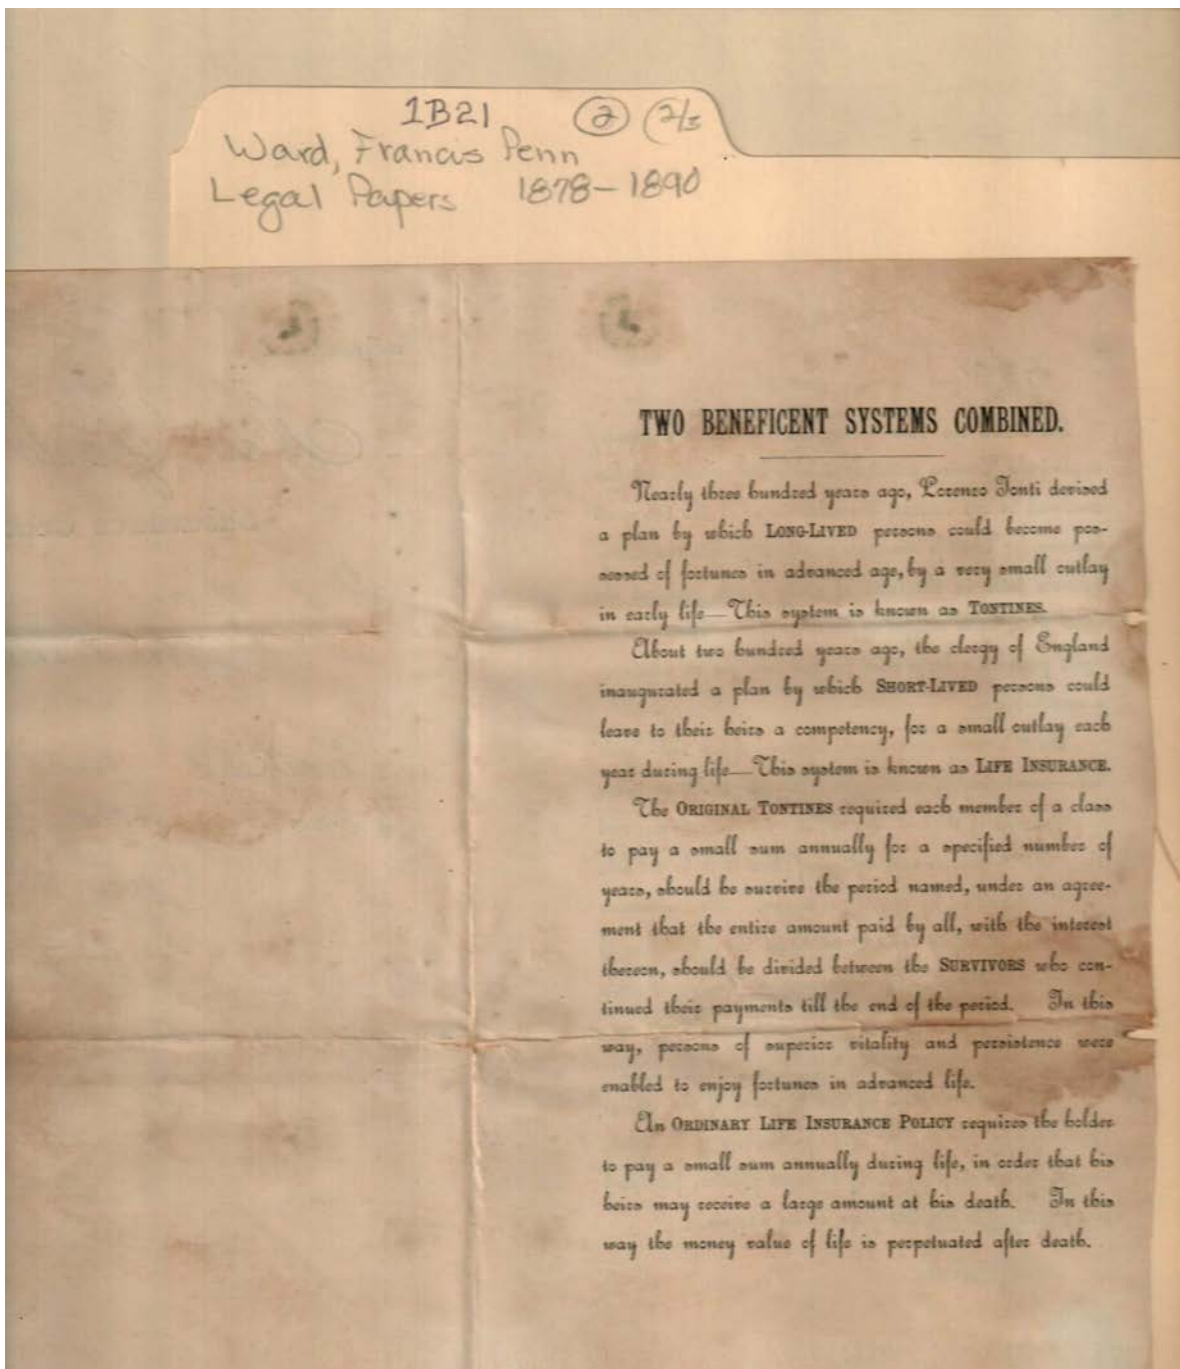 1B21 2 (2/3)
Ward, Francis Penn
Legal Papers 1878-1890
TWO BENEFICENT SYSTEMS COMBINED.
Nearly three hundred years ago, Lorenzo Tonti devised
a plan by which LONG-LIVED persons could become pos-
sessed of fortunes in advanced age, by a very small outlay
in early life—This system is known as TONTINES.
About two hundred years ago, the clergy of England
inaugurated a plan by which SHORT-LIVED persons could
leave to their heirs a competency, for a small outlay each
year during life—This system is known as LIFE INSURANCE.
The ORIGINAL TONTINES required each member of a class
to pay a small sum annually for a specified number of
years, should he survive the period named, under an agree-
ment that the entire amount paid by all, with the interest
thereon, should be divided between the SURVIVORS who con-
tinued their payments till the end of the period. In this
way, persons of superior vitality and persistence were
enabled to enjoy fortunes in advanced life.
An ORDINARY LIFE INSURANCE POLICY requires the holder
to pay a small sum annually during life, in order that his
heirs may receive a large amount at his death. In this
way the money value of life is perpetuated after death.